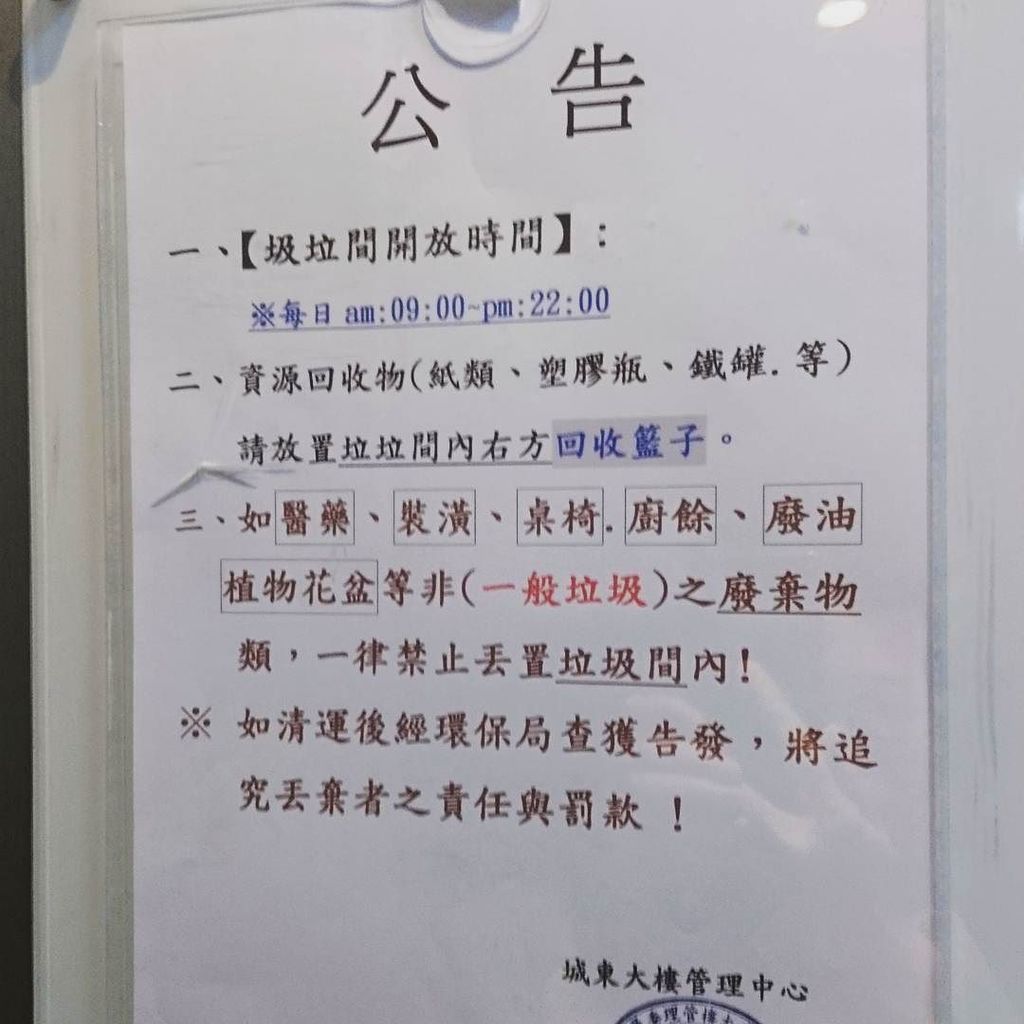 公 告
一、【圾垃間開放時間】：
※每日 am:09:00~pm:22:00
二、資源回收物(紙類、塑膠瓶、鐵罐.等)
請放置垃垃間內右方回收籃子。
三、如醫藥、裝潢、桌椅.廚餘、廢油
植物花盆等非(一般垃圾)之廢棄物
類，一律禁止丟置垃圾間內!
※ 如清運後經環保局查獲告發，將追
究丟棄者之責任與罰款 !
城東大樓管理中心